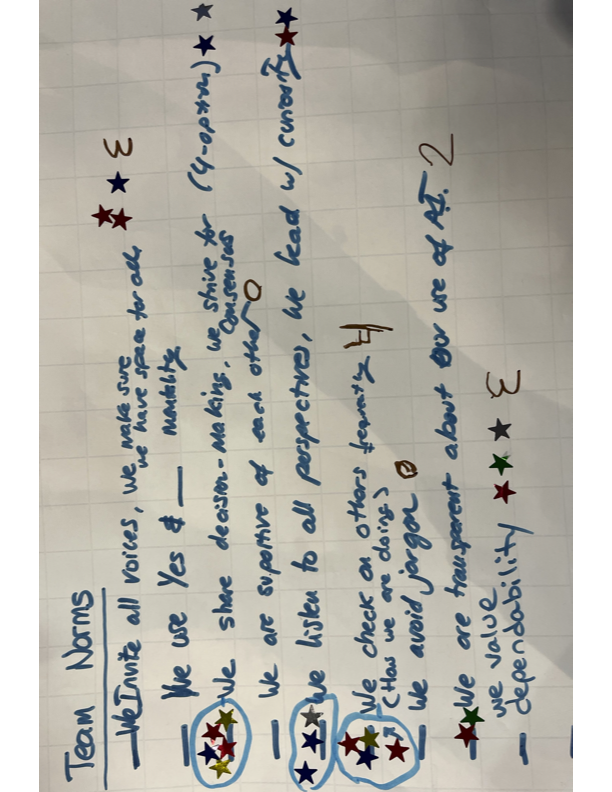 Team Norms
— We Invite all voices, we make sure
we have space for all. 3
— We use Yes & — mentality
— We share decision-making, we strive for (4-option)
consensus
— We are suportive of each other 0
— We listen to all perspectives, we lead w/ curiosity
— We check on others frequently 4
(How we are doing?)
— We avoid jargon 0
— We are transparent about our use of AI. 2
— we value
dependability 3
—